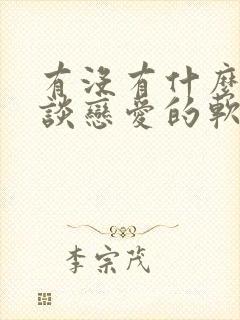 有没有什麼
談戀愛的軟
李宗茂